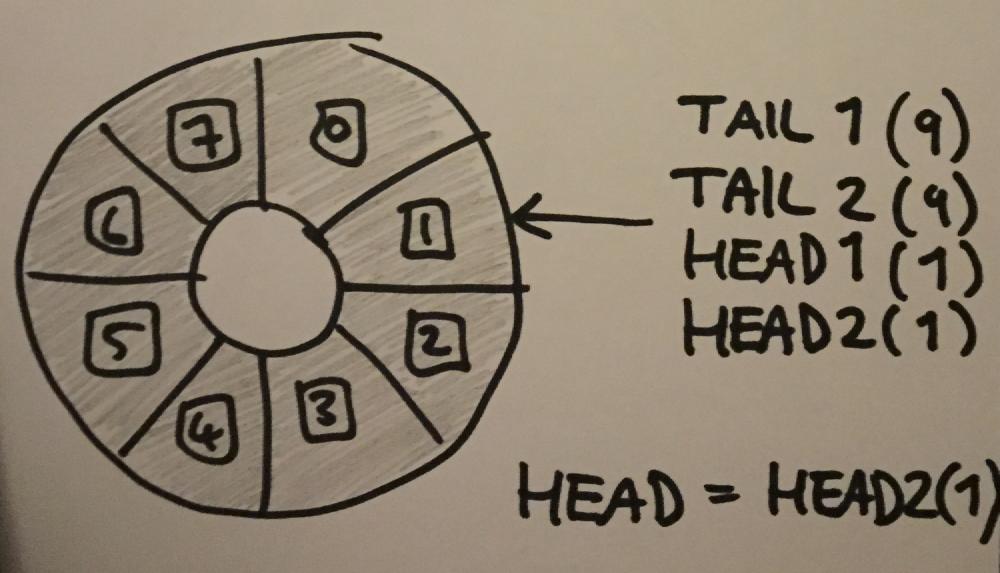 7
0
6
1
5
2
4
3
TAIL 1 (9)
TAIL 2 (9)
HEAD 1 (1)
HEAD2(1)
HEAD = HEAD2(1)